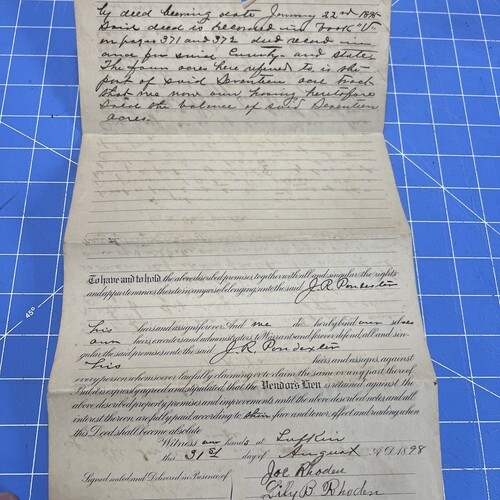 by deed bearing date January 22nd 189
Said deed is recorded in book "V"
on pages 371 and 372 deed record in
and for said County and State
The four acre here refered to is the
part of said Seventeen acre tract
that we now own having heretofore
sold the balance of said Seventeen
acres.
To have and to hold, the above described premises, together with all and singular the rights
and appurtenances thereto in anywise belonging, unto the said J. R. Pondexter
his heirs and assigns forever. And we do hereby bind our selves
our heirs, executors and administrators to Warrant and forever defend, all and sin-
gular the said premises unto the said J. R. Pondexter
his heirs and assigns, against
every person whomsoever lawfully claiming or to claim the same or any part thereof.
But it is expressly agreed and stipulated, that the Vendor's Lien is retained against the
above described property, premises and improvements, until the above described notes, and all
interest thereon, are fully paid, according to their face and tenor, effect and reading, when
this Deed shall become absolute.
Witness our hands at Lufkin
this 31st day of August A.D. 1898
Signed sealed and Delivered in Presence of
Joe Rhoden
Lily B Rhoden
45°